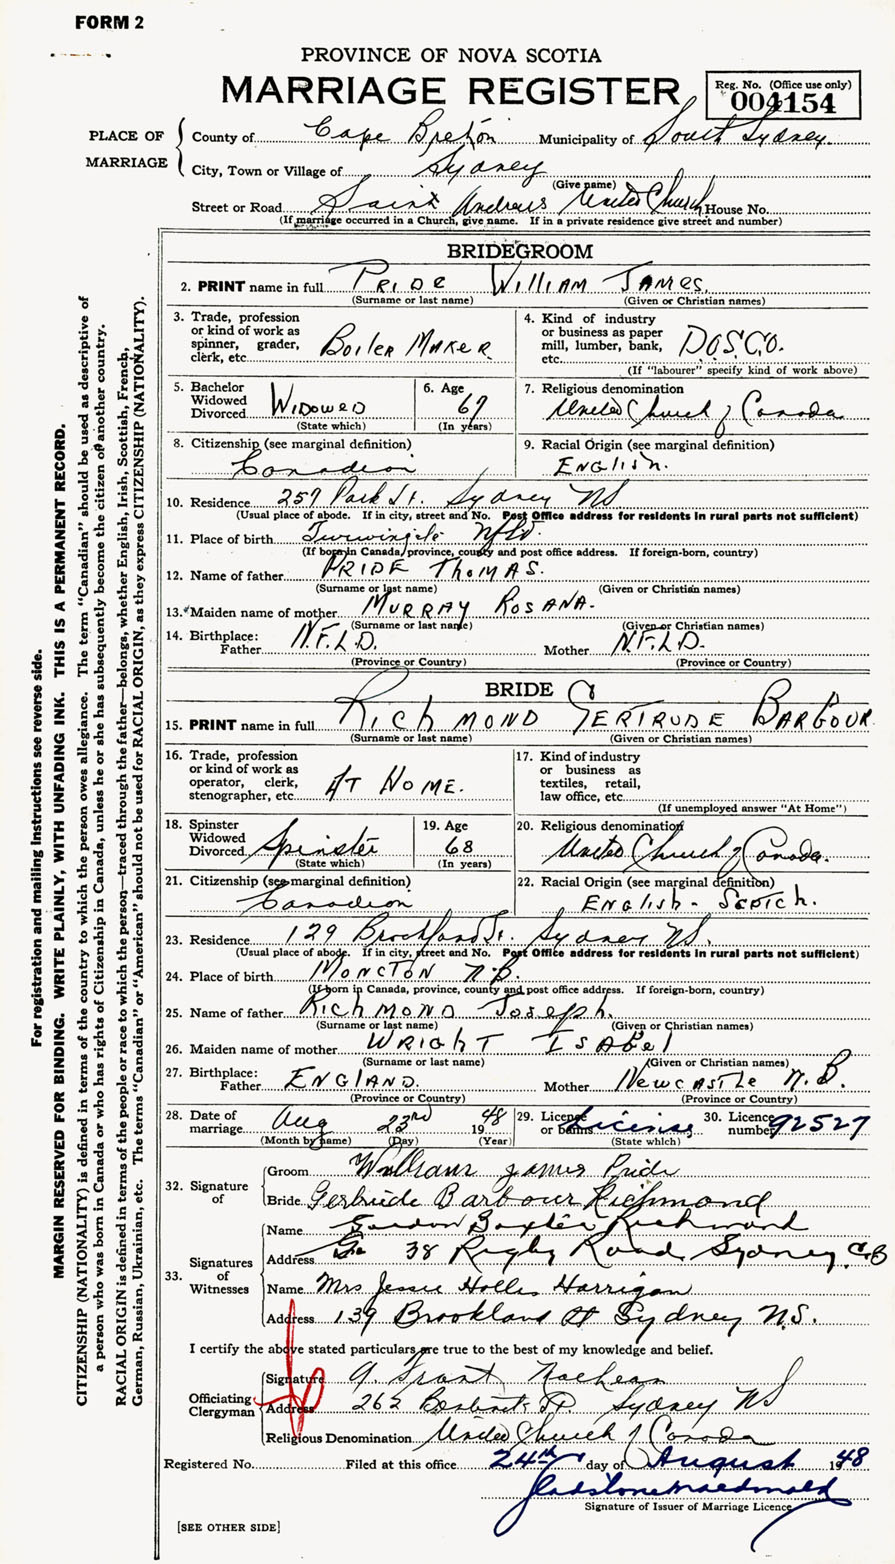 FORM 2
PROVINCE OF NOVA SCOTIA
MARRIAGE REGISTER
Reg. No. (Office use only)
004154
PLACE OF MARRIAGE
County of Cape Breton Municipality of South Sydney
City, Town or Village of Sydney
(Give name)
Street or Road Saint Andrews United Church House No.
(If marriage occurred in a Church, give name. If in a private residence give street and number)
BRIDEGROOM
2. PRINT name in full PRIDE WILLIAM JAMES.
(Surname or last name) (Given or Christian names)
3. Trade, profession or kind of work as spinner, grader, clerk, etc. BOILER MAKER
4. Kind of industry or business as paper mill, lumber, bank, etc. D.O.S.CO.
(If "labourer" specify kind of work above)
5. Bachelor Widowed Divorced WIDOWED
(State which)
6. Age 67
(In years)
7. Religious denomination United Church of Canada
8. Citizenship (see marginal definition) Canadian
9. Racial Origin (see marginal definition) ENGLISH.
10. Residence 257 Park St. Sydney NS
(Usual place of abode. If in city, street and No. Post Office address for residents in rural parts not sufficient)
11. Place of birth Nfld.
(If born in Canada, province, county and post office address. If foreign-born, country)
12. Name of father PRIDE THOMAS.
(Surname or last name) (Given or Christian names)
13. Maiden name of mother MURRAY ROSANA.
(Surname or last name) (Given or Christian names)
14. Birthplace:
Father N.F.L.D. Mother N.F.L.D.
(Province or Country) (Province or Country)
BRIDE
15. PRINT name in full RICHMOND GERTRUDE BARBOUR
(Surname or last name) (Given or Christian names)
16. Trade, profession or kind of work as operator, clerk, stenographer, etc. AT HOME.
17. Kind of industry or business as textiles, retail, law office, etc.
(If unemployed answer "At Home")
18. Spinster Widowed Divorced Spinster
(State which)
19. Age 68
(In years)
20. Religious denomination United Church of Canada.
21. Citizenship (see marginal definition) Canadian
22. Racial Origin (see marginal definition) ENGLISH - SCOTCH.
23. Residence 129 Brookland St. Sydney NS.
(Usual place of abode. If in city, street and No. Post Office address for residents in rural parts not sufficient)
24. Place of birth MONCTON N.B.
(If born in Canada, province, county and post office address. If foreign-born, country)
25. Name of father RICHMOND JOSEPH.
(Surname or last name) (Given or Christian names)
26. Maiden name of mother WRIGHT ISABEL
(Surname or last name) (Given or Christian names)
27. Birthplace:
Father ENGLAND. Mother NEWCASTLE N.B.
(Province or Country) (Province or Country)
28. Date of marriage Aug 23rd 1948
(Month by name) (Day) (Year)
29. License or banns License
(State which)
30. Licence number 92527
32. Signature of
Groom William James Pride
Bride Gertrude Barbour Richmond
33. Signatures of Witnesses
Name Gordon Baxter Richmond
Address 38 Rigby Road Sydney C.B
Name Mrs Jessie Hollis Harrigan
Address 139 Brookland St Sydney N.S.
I certify the above stated particulars are true to the best of my knowledge and belief.
Officiating Clergyman
Signature Grant MacLean
Address 262 Sydney NS
Religious Denomination United Church of Canada
Registered No. Filed at this office 24th day of August 1948
Gladstone Macdonald
Signature of Issuer of Marriage Licence
[SEE OTHER SIDE]
For registration and mailing instructions see reverse side.
MARGIN RESERVED FOR BINDING. WRITE PLAINLY, WITH UNFADING INK. THIS IS A PERMANENT RECORD.
CITIZENSHIP (NATIONALITY) is defined in terms of the country to which the person owes allegiance. The term "Canadian" should be used as descriptive of
a person who was born in Canada or who has rights of Citizenship in Canada, unless he or she has subsequently become the citizen of another country.
RACIAL ORIGIN is defined in terms of the people or race to which the person—traced through the father—belongs, whether English, Irish, Scottish, French,
German, Russian, Ukrainian, etc. The terms "Canadian" or "American" should not be used for RACIAL ORIGIN, as they express CITIZENSHIP (NATIONALITY).